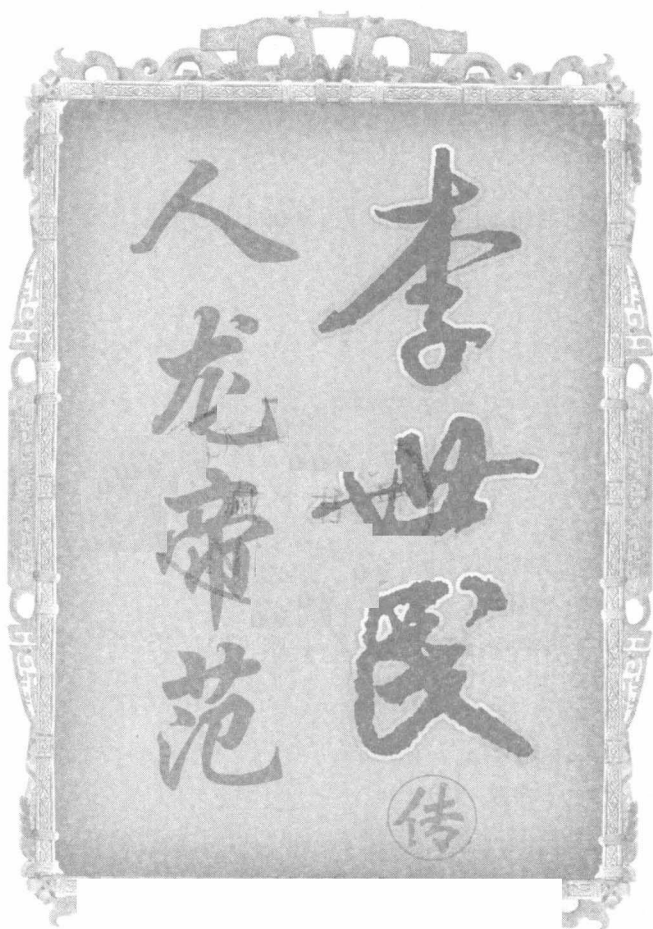 李世民传
人龙帝范